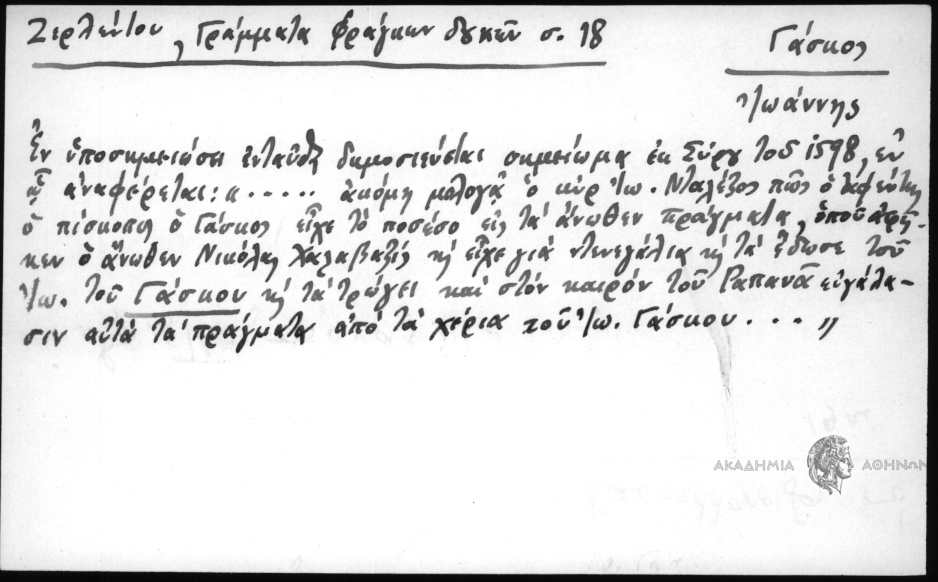 Ζερλέντου, Γράμματα Φράγκων δουκῶν σ. 18
Γάσκος
Ἰωάννης
Ἐν ὑποσημειώσει ἐνταῦθα δημοσιεύεται σημείωμα ἐκ Σύρου τοῦ 1598, ἐν
ᾧ ἀναφέρεται: « ..... ἀκόμη μολογᾷ ὁ κὺρ Ἰω. Νταλέζος πῶς ὁ ἀφέντης
ὁ πίσκοπος ὁ Γάσκος εἶχε τὸ ποσέσο εἰς τὰ ἄνωθεν πράγματα, ὁποῦ ἀφῆ-
κεν ὁ ἄνωθεν Νικόλας Χαλαβαζῆς κὴ εἶχε γιὰ ντενεγάλια κὴ τὰ ἔδωσε τοῦ
Ἰω. τοῦ Γάσκου κὴ τὰ τρώγει καὶ στὸν καιρὸν τοῦ Γαπανᾶ εὐγάλα-
σιν αὐτὰ τὰ πράγματα ἀπὸ τὰ χέρια τοῦ Ἰω. Γάσκου . . . »
ΑΚΑΔΗΜΙΑ ΑΘΗΝΩΝ